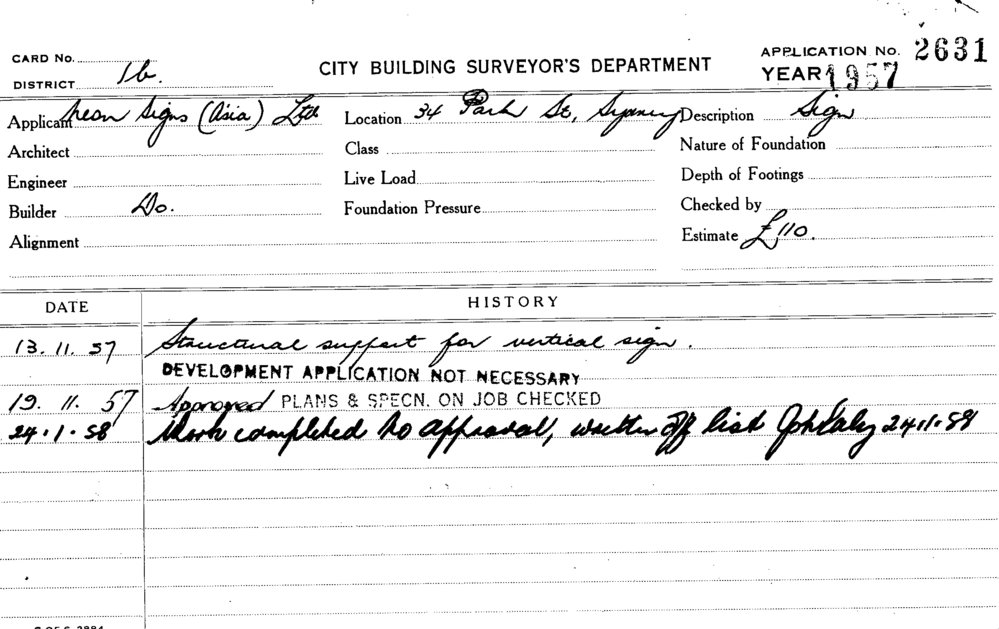 CARD No.
APPLICATION No. 2631
DISTRICT 1b.
CITY BUILDING SURVEYOR'S DEPARTMENT
YEAR 1957
Applicant Neon Signs (Asia) Ltd Location 34 Park St, Sydney Description Sign
Architect Class Nature of Foundation
Engineer Live Load Depth of Footings
Builder Do. Foundation Pressure Checked by
Alignment Estimate £110.
DATE HISTORY
13.11.57 Structural support for vertical sign.
DEVELOPMENT APPLICATION NOT NECESSARY
19.11.57 Approved PLANS & SPECN. ON JOB CHECKED
24.1.58 Work completed to approval, written off list 24.1.58